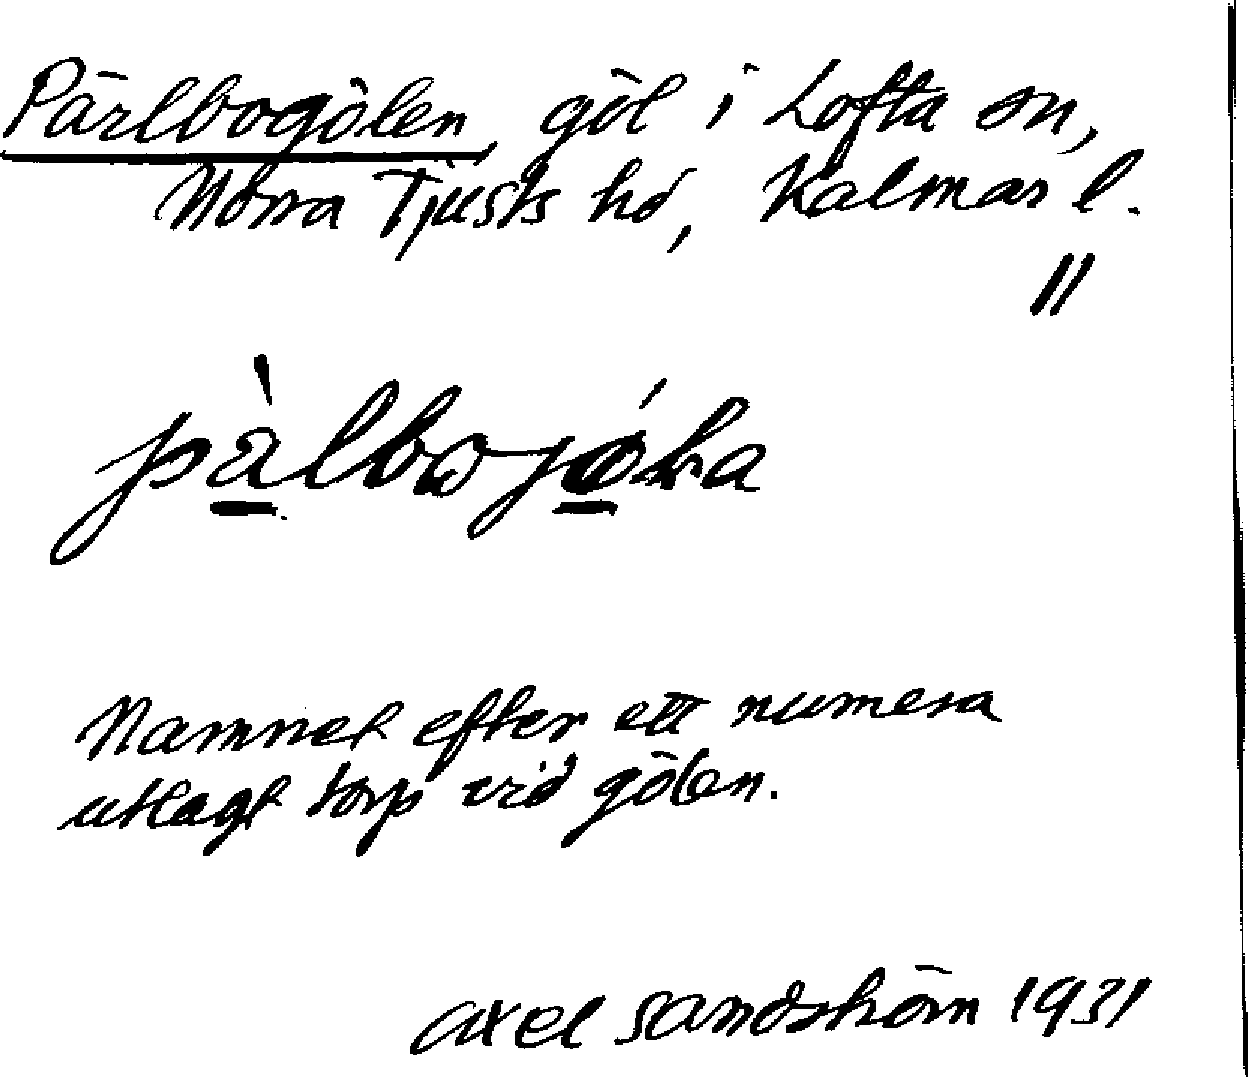 Pärlbogölen, göl i Lofta sn,
Norra Tjusts hd, Kalmar l.
Namnet efter ett numera
utlagt torp vid gölen.
Axel Sandström 1931